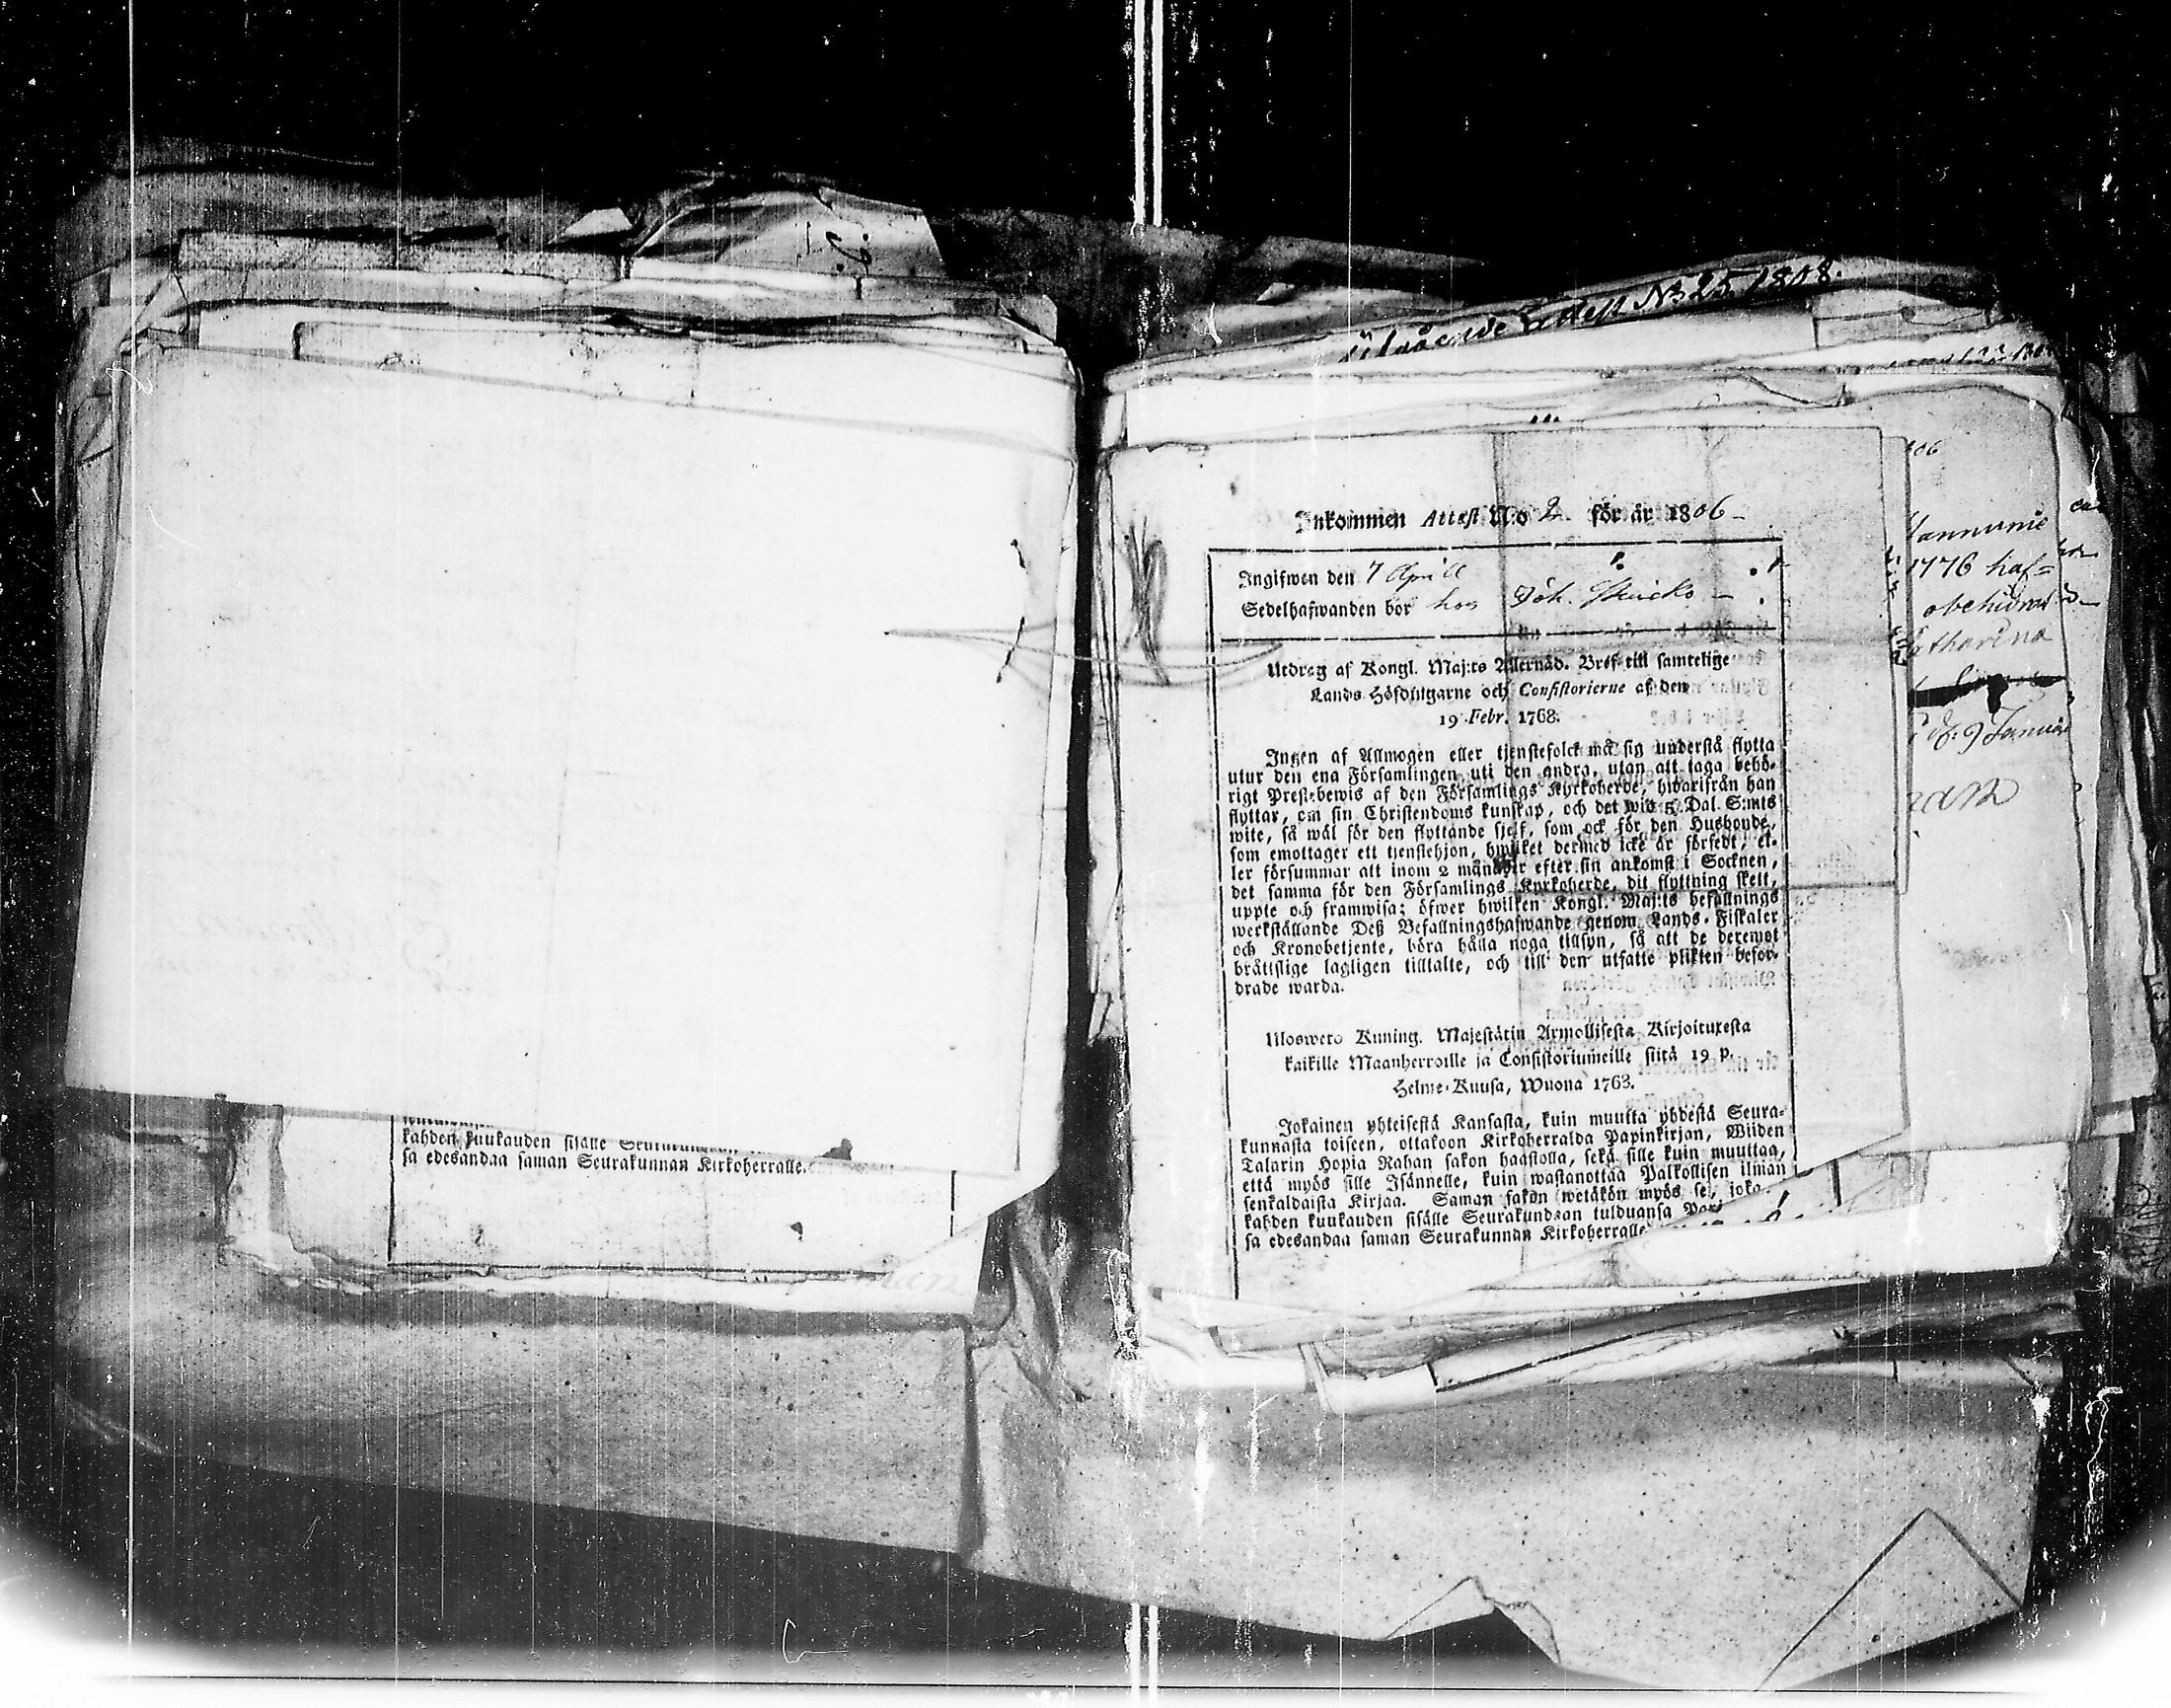 kahden kuukauden sisälle
sa edesandaa saman Seurakunnan Kirkoherralle.
Utgående Attest No 25 1808.
Inkommen Attest N:o 2. för år 1806-
Ingifwen den 7 Aprill
Sedelhafwanden bor hos Joh.
Utdrag af Kongl. Maj:ts Allernåd. Bref till samtelige
Lands Höfdingarne och Consistorierne af den
19 Febr. 1768.
Ingen af Allmogen eller tjenstefolck må sig understå flytta
utur den ena Församlingen uti den andra, utan att taga behö-
rigt Prest-bewis af den Församlings Kyrkoherde, hwarifrån han
flyttar, om sin Christendoms kunskap, och det wid 5 Dal. S:mts
wite, så wäl för den flyttande sjelf, som ock för den Husbonde,
som emottager ett tjenstehjon, hwilket dermed icke är försedt, el-
ler försummar att inom 2 månader efter sin ankomst i Socknen,
det samma för den Församlings Kyrkoherde, dit flyttning skett,
uppte och framwisa; öfwer hwilken Kongl. Maj:ts befallnings
werkställande Deß Befallningshafwande genom Lands-Fiskaler
och Kronobetjente, böra hålla noga tillsyn, så att de deremot
bråttslige lagligen tilltalte, och till den utsatte plikten befor-
drade warda.
Ulosweto Kuning. Majestätin Armollisesta Kirjoituxesta
kaikille Maanherroille ja Consistoriumeille siitä 19 p.
Helme-Kuusa, Wuona 1763.
Jokainen yhteisestä Kansasta, kuin muutta yhdestä Seura-
kunnasta toiseen, ottakoon Kirkoherralda Papinkirjan, Wiiden
Talarin Hopia Rahan sakon haastolla, sekä sille kuin muuttaa,
että myös sille Isännelle, kuin wastanottaa Palkollisen ilman
senkaldaista Kirjaa. Saman sakon wetäkön myös se, joka
kahden kuukauden sisälle Seurakundaan tulduansa
sa edesandaa saman Seurakunnan Kirkoherralle
1776 haf=
Catharina
d. 9 Januar